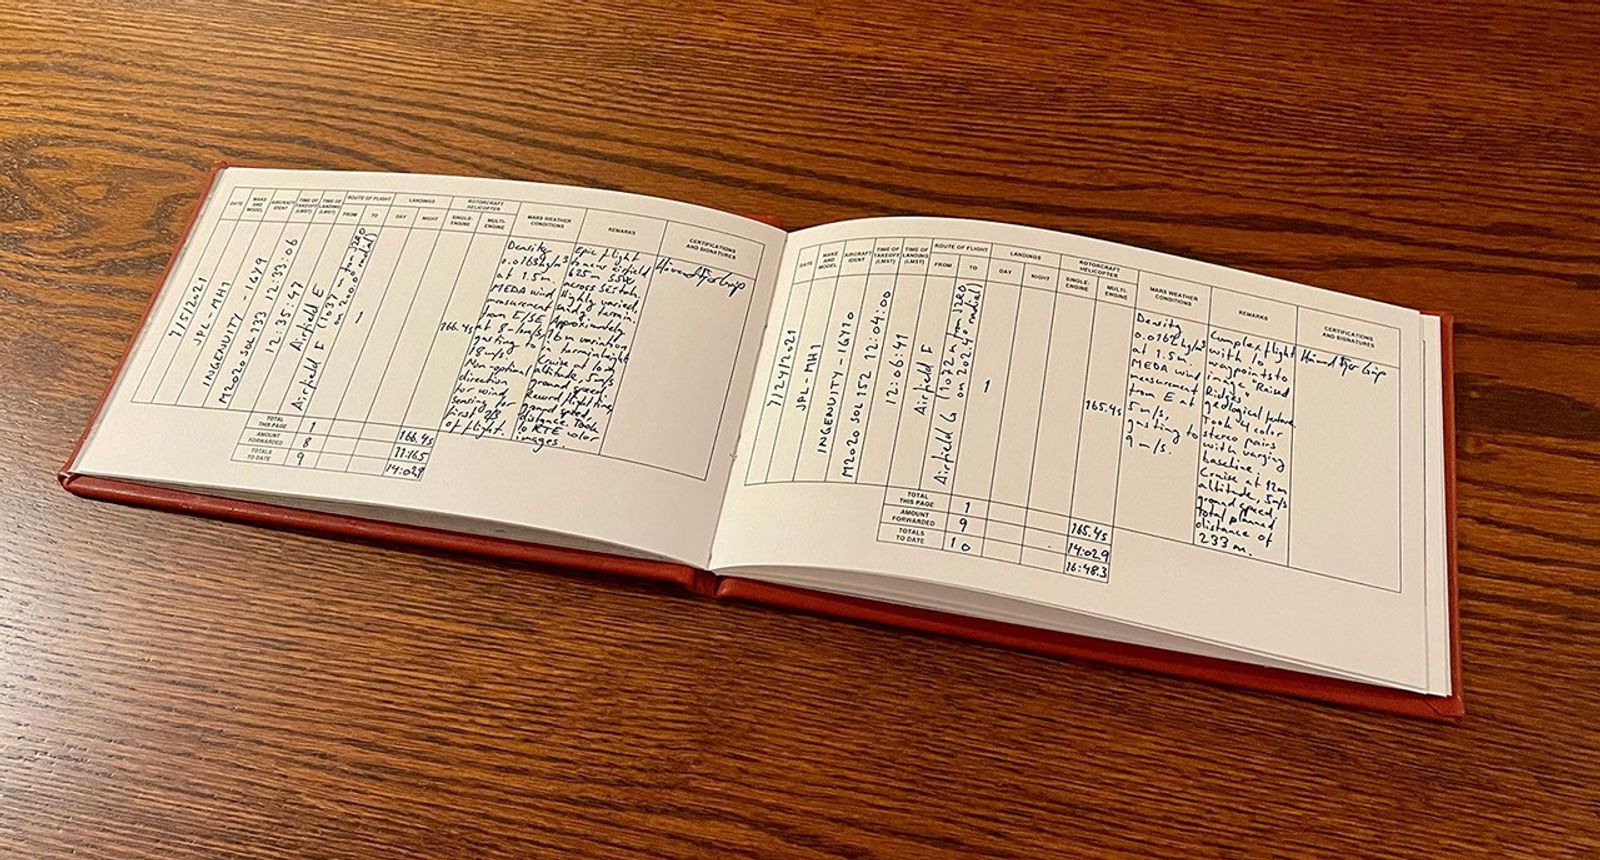 DATE
MAKE
AND
MODEL
AIRCRAFT
IDENT
TIME OF
TAKEOFF
(LMST)
TIME OF
LANDING
(LMST)
ROUTE OF FLIGHT
FROM
TO
LANDINGS
DAY
NIGHT
ROTORCRAFT
HELICOPTER
SINGLE-
ENGINE
MULTI-
ENGINE
MARS WEATHER
CONDITIONS
REMARKS
CERTIFICATIONS
AND SIGNATURES
7/5/2021
JPL-MH1
INGENUITY - IGY9
M2020 SOL 133 12:33:06
12:35:47
Airfield E
Airfield F (1037 m from JZRO
on 200.0° radial)
1
166.4s
Density
0.0163kg/m3
at 1.5m.
MEDA wind
measurement
from E/SE
at 8-
gusting to
18m/s.
Non-optimal
direction
for wind
sensing for
first 2/3
of flight.
Epic flight
to new airfield
625m SSW,
across Séítah.
Highly varied,
sandy terrain.
Approximately
variation
in terrain height
Cruise at 10m
altitude, 5m/s
ground speed.
Record flight time,
ground speed,
distance. Took
10 RTE color
images.
TOTAL
THIS PAGE
1
166.4s
AMOUNT
FORWARDED
8
11:16.5
TOTALS
TO DATE
9
14:02.9
DATE
MAKE
AND
MODEL
AIRCRAFT
IDENT
TIME OF
TAKEOFF
(LMST)
TIME OF
LANDING
(LMST)
ROUTE OF FLIGHT
FROM
TO
LANDINGS
DAY
NIGHT
ROTORCRAFT
HELICOPTER
SINGLE-
ENGINE
MULTI-
ENGINE
MARS WEATHER
CONDITIONS
REMARKS
CERTIFICATIONS
AND SIGNATURES
7/24/2021
JPL-MH1
INGENUITY - IGY10
M2020 SOL 152 12:04:00
12:06:41
Airfield F
Airfield G (1072 m from JZRO
on 202.4° radial)
1
165.4s
Density
0.0162kg/m3
at 1.5m.
MEDA wind
measurement
from E at
5m/s,
gusting to
9m/s.
Complex flight
with 10
waypoints to
image "Raised
Ridges"
geological feature.
Took 24 color
stereo pairs
with varying
baseline.
Cruise at 12m
altitude, 5m/s
ground speed
Total planned
distance of
233 m.
TOTAL
THIS PAGE
1
165.4s
AMOUNT
FORWARDED
9
14:02.9
TOTALS
TO DATE
10
16:48.3